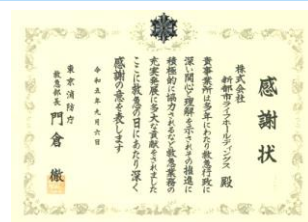 感謝状
株式会社
新都市ライフホールディングス 殿
貴事業所は多年にわたり救急行政に
深い関心と理解を示されその推進に
積極的に協力されるなど救急業務の
充実発展に多大な貢献をされました
ここに救急の日にあたり深く
感謝の意を表します
令和五年九月六日
東京消防庁
救急部長 門倉 徹